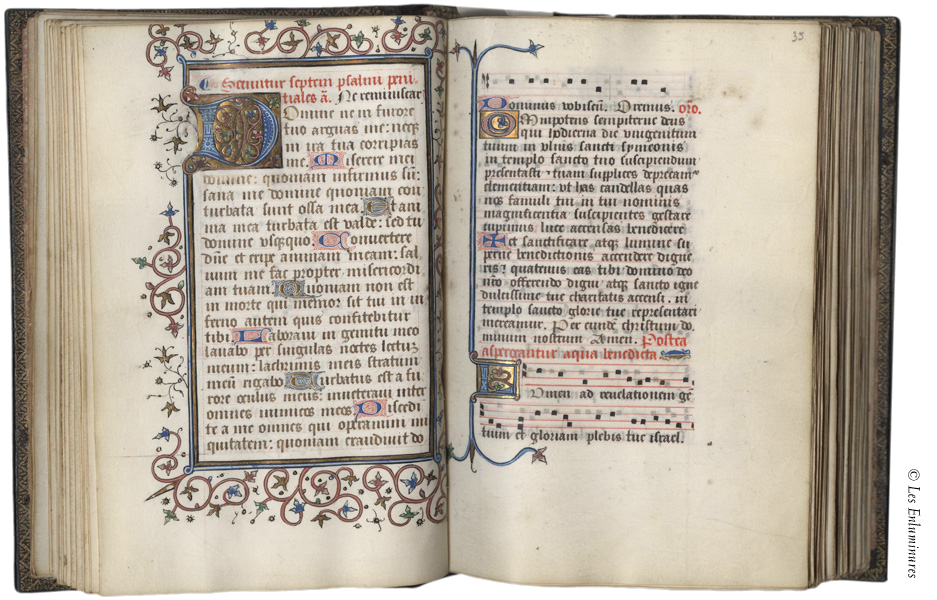 Secuntur septem psalmi peni-
tiales añ. Ne reminiscar.
Domine ne in furore
tuo arguas me: neqz
in ira tua corripias
me. Miserere mei
domine: quoniam infirmus sū:
sana me domine quoniam con
turbata sunt ossa mea. Et ani
ma mea turbata est valde: sed tu
domine usqzquo. Convertere
dñe et eripe animam meam: sal
vum me fac propter misericordi
am tuam. Quoniam non est
in morte qui memor sit tui in in
ferno autem quis confitebitur
tibi. Laboravi in gemitu meo
lavabo per singulas noctes lectuz
meum: lachrimis meis stratum
meū rigabo. Turbatus est a fu
rore oculus meus: inveteravi inter
omnes inimicos meos. Discedi
te a me omnes qui operamini ini
quitatem: quoniam exaudivit do
35
Dominus vobiscū. Oremus. oro.
Omnipotens sempiterne deus
qui hodierna die unigenitum
tuum in ulnis sancti symeonis
in templo sancto tuo suscipiendum
presentasti: tuam supplices deprecam
clementiam: ut has candellas quas
nos famuli tui in tui nominis
magnificentia suscipientes gestare
cupimus luce accensas benedicere
et sanctificare atqz lumine su
perne benedictionis accendere digne
ris: quatenus eas tibi domino deo
nr̄o offerendo digni atqz sancto igne
dulcissime tue charitatis accensi. in
templo sancto glorie tue representari
mereamur. Per eundē christum do
minum nostrum Amen. Postea
aspergantur aqua benedicta
Lumen ad revelationem gē
tium et gloriam plebis tue israel.
© Les Enluminures